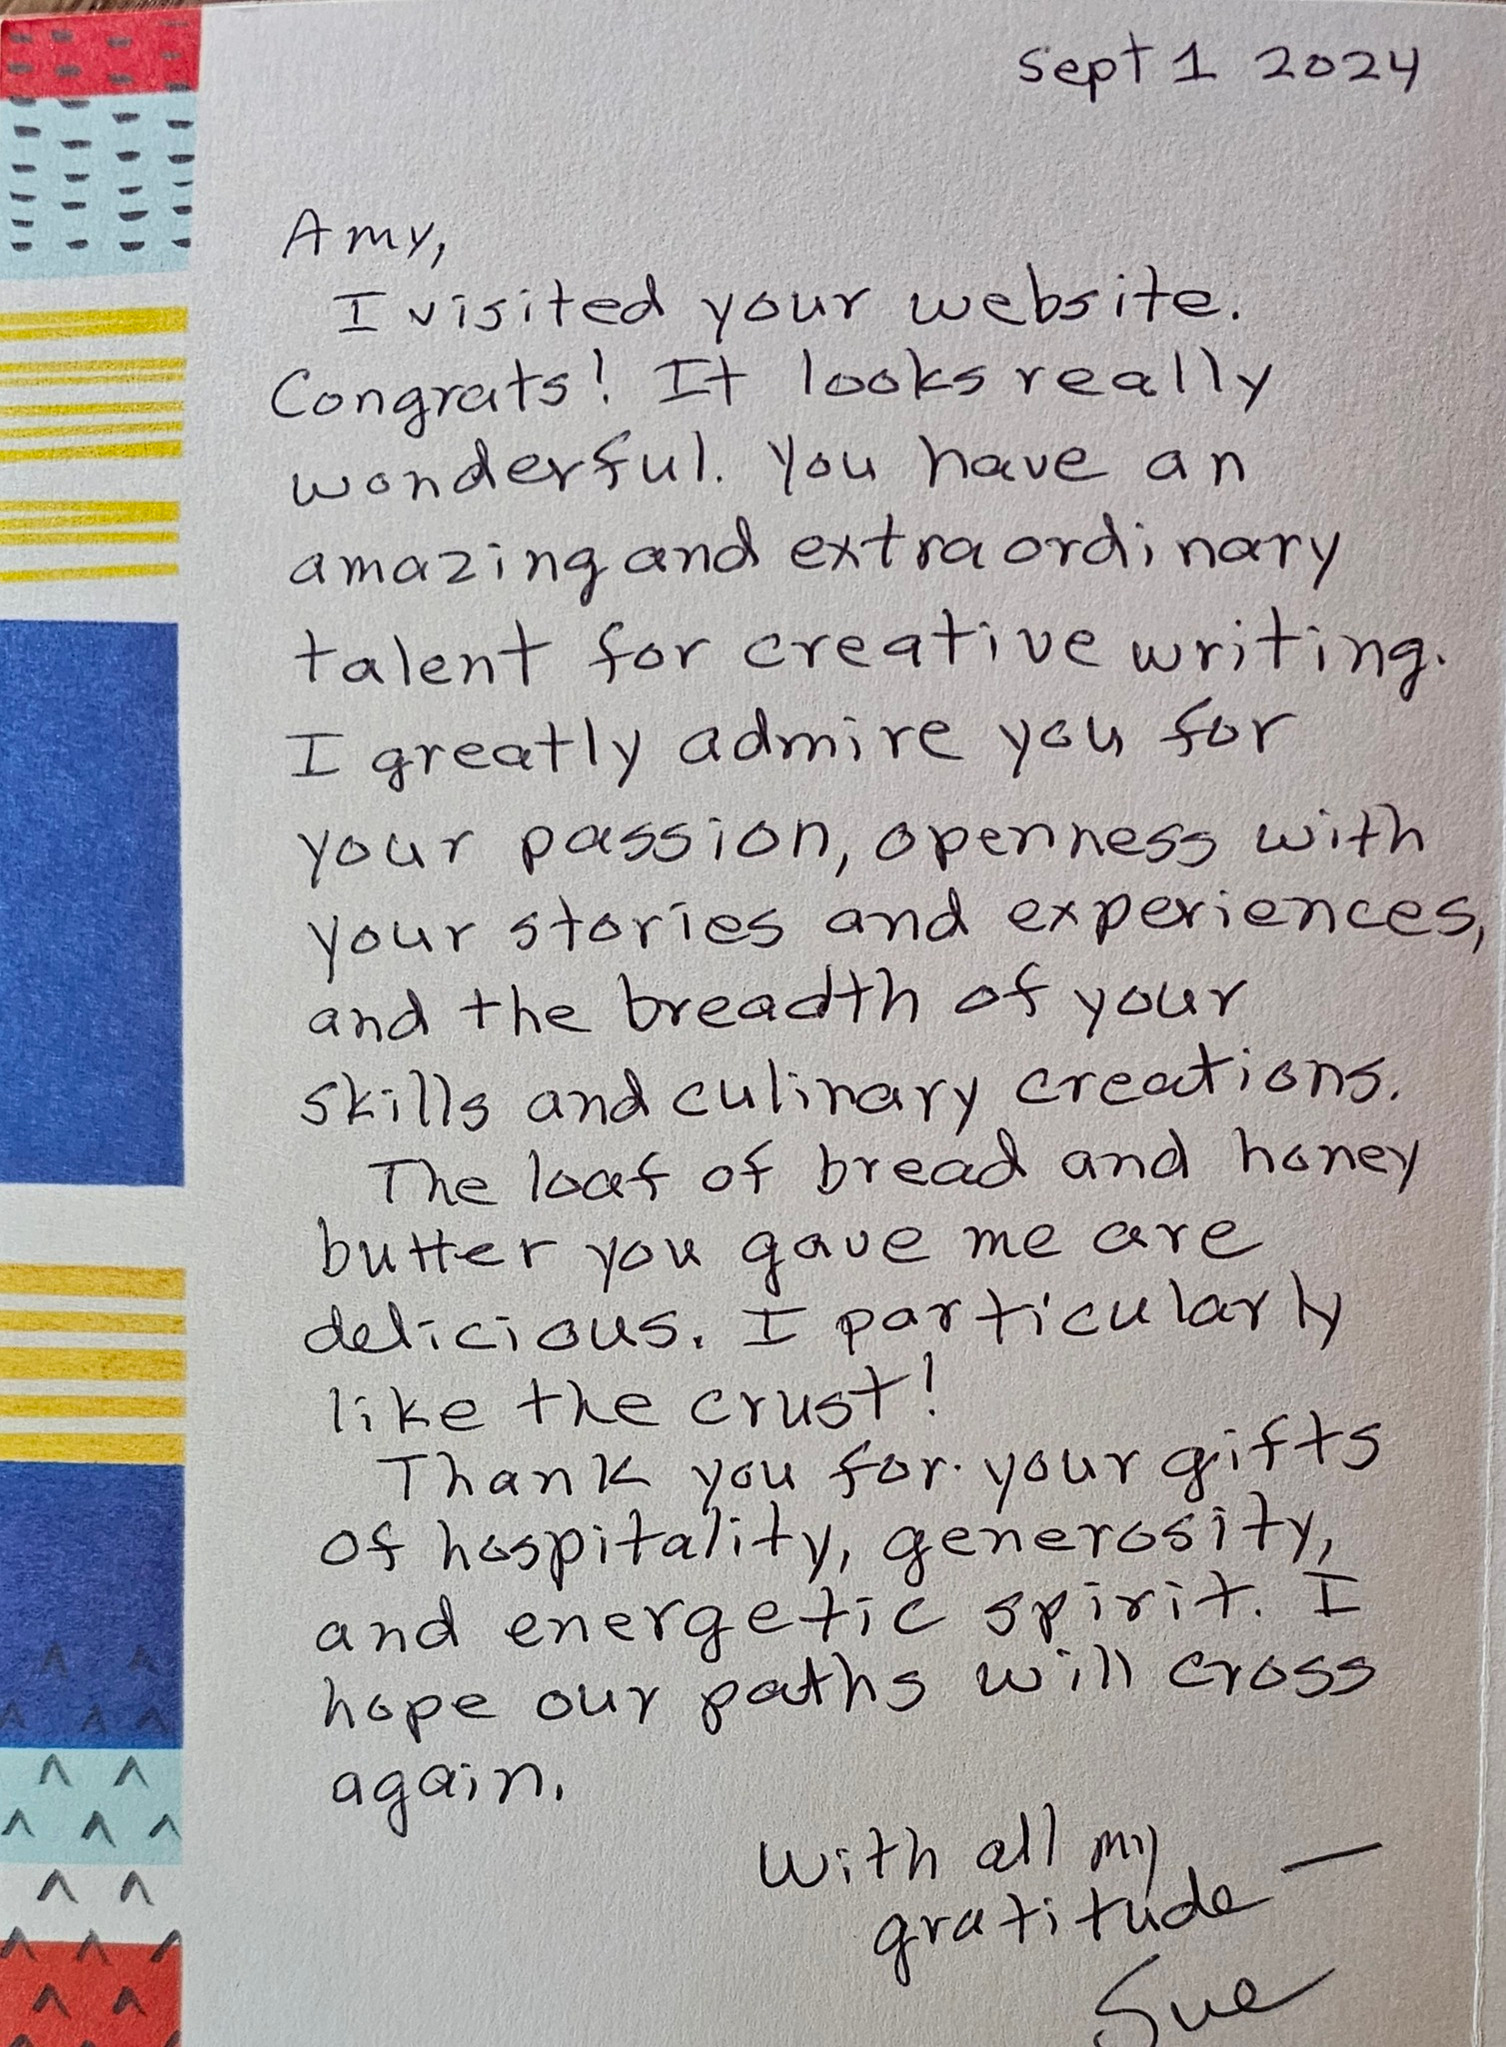 Sept 1 2024
Amy,
I visited your website.
Congrats! It looks really
wonderful. You have an
amazing and extraordinary
talent for creative writing.
I greatly admire you for
your passion, openness with
your stories and experiences,
and the breadth of your
skills and culinary creations.
The loaf of bread and honey
butter you gave me are
delicious. I particularly
like the crust!
Thank you for your gifts
of hospitality, generosity,
and energetic spirit. I
hope our paths will cross
again.
With all my
gratitude —
Sue